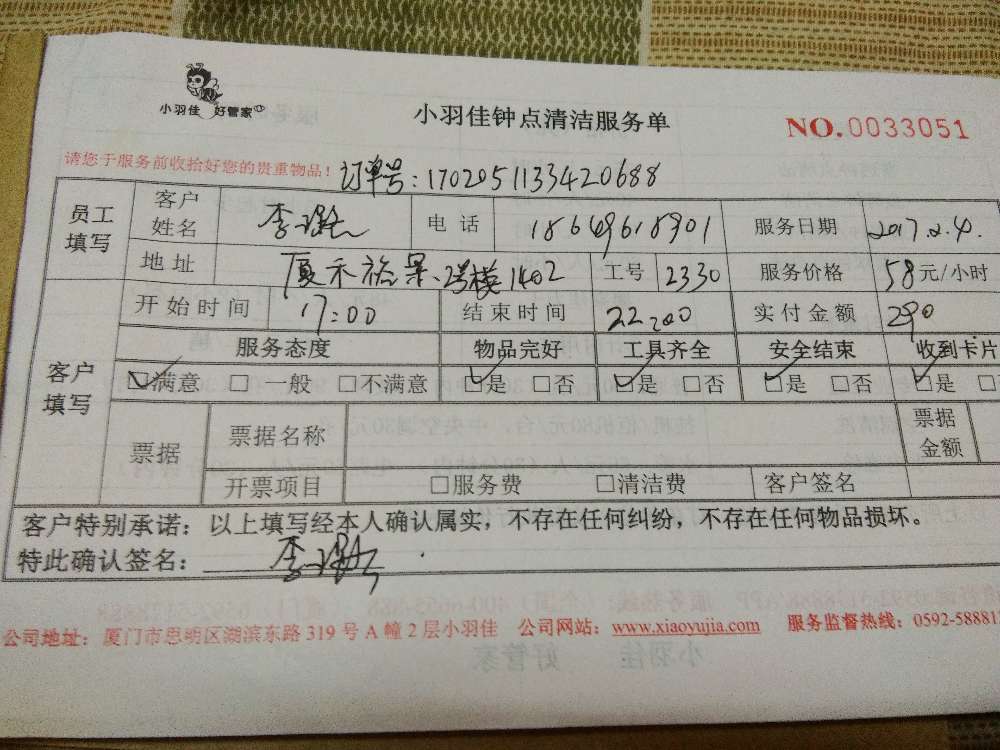 小羽佳 好管家
小羽佳钟点清洁服务单
NO.0033051
请您于服务前收拾好您的贵重物品！ 订单号:170205113342068 8
员工填写 客户姓名 李 电话 18649618901 服务日期 2017.2.4.
地址 厦禾裕景2号楼1402 工号 2330 服务价格 58元/小时
开始时间 17:00 结束时间 22:00 实付金额 290
客户填写 服务态度 物品完好 工具齐全 安全结束 收到卡片
☑满意 □一般 □不满意 ☑是 □否 ☑是 □否 ☑是 □否 ☑是 □
票据 票据名称 票据金额
开票项目 □服务费 □清洁费 客户签名
客户特别承诺：以上填写经本人确认属实，不存在任何纠纷，不存在任何物品损坏。
特此确认签名： 李
公司地址：厦门市思明区湖滨东路 319 号 A 幢 2 层小羽佳 公司网站：www.xiaoyujia.com 服务监督热线：0592-58881